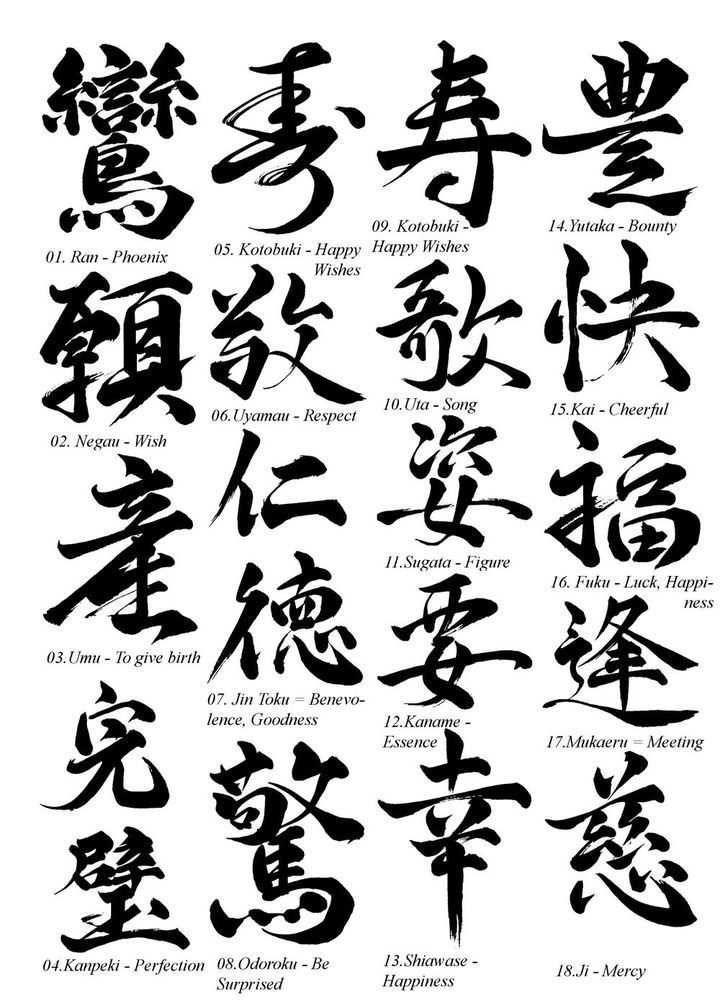 鸞
01. Ran - Phoenix
願
02. Negau - Wish
産
03.Umu - To give birth
完
璧
04.Kanpeki - Perfection
寿
05. Kotobuki - Happy
Wishes
敬
06.Uyamau - Respect
仁
徳
07. Jin Toku = Benevo-
lence, Goodness
驚
08.Odoroku - Be
Surprised
寿
09. Kotobuki -
Happy Wishes
歌
10.Uta - Song
姿
11.Sugata - Figure
要
12.Kaname -
Essence
幸
13.Shiawase -
Happiness
豊
14.Yutaka - Bounty
快
15.Kai - Cheerful
福
16. Fuku - Luck, Happi-
ness
逢
17.Mukaeru = Meeting
慈
18.Ji - Mercy